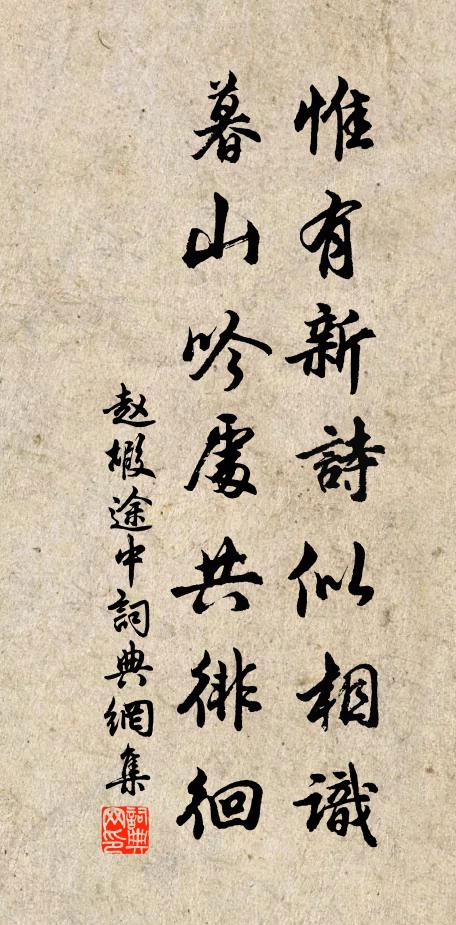 惟有新詩似相識
暮山吟處共徘徊
赵嘏途中詞典網集
詞典网印